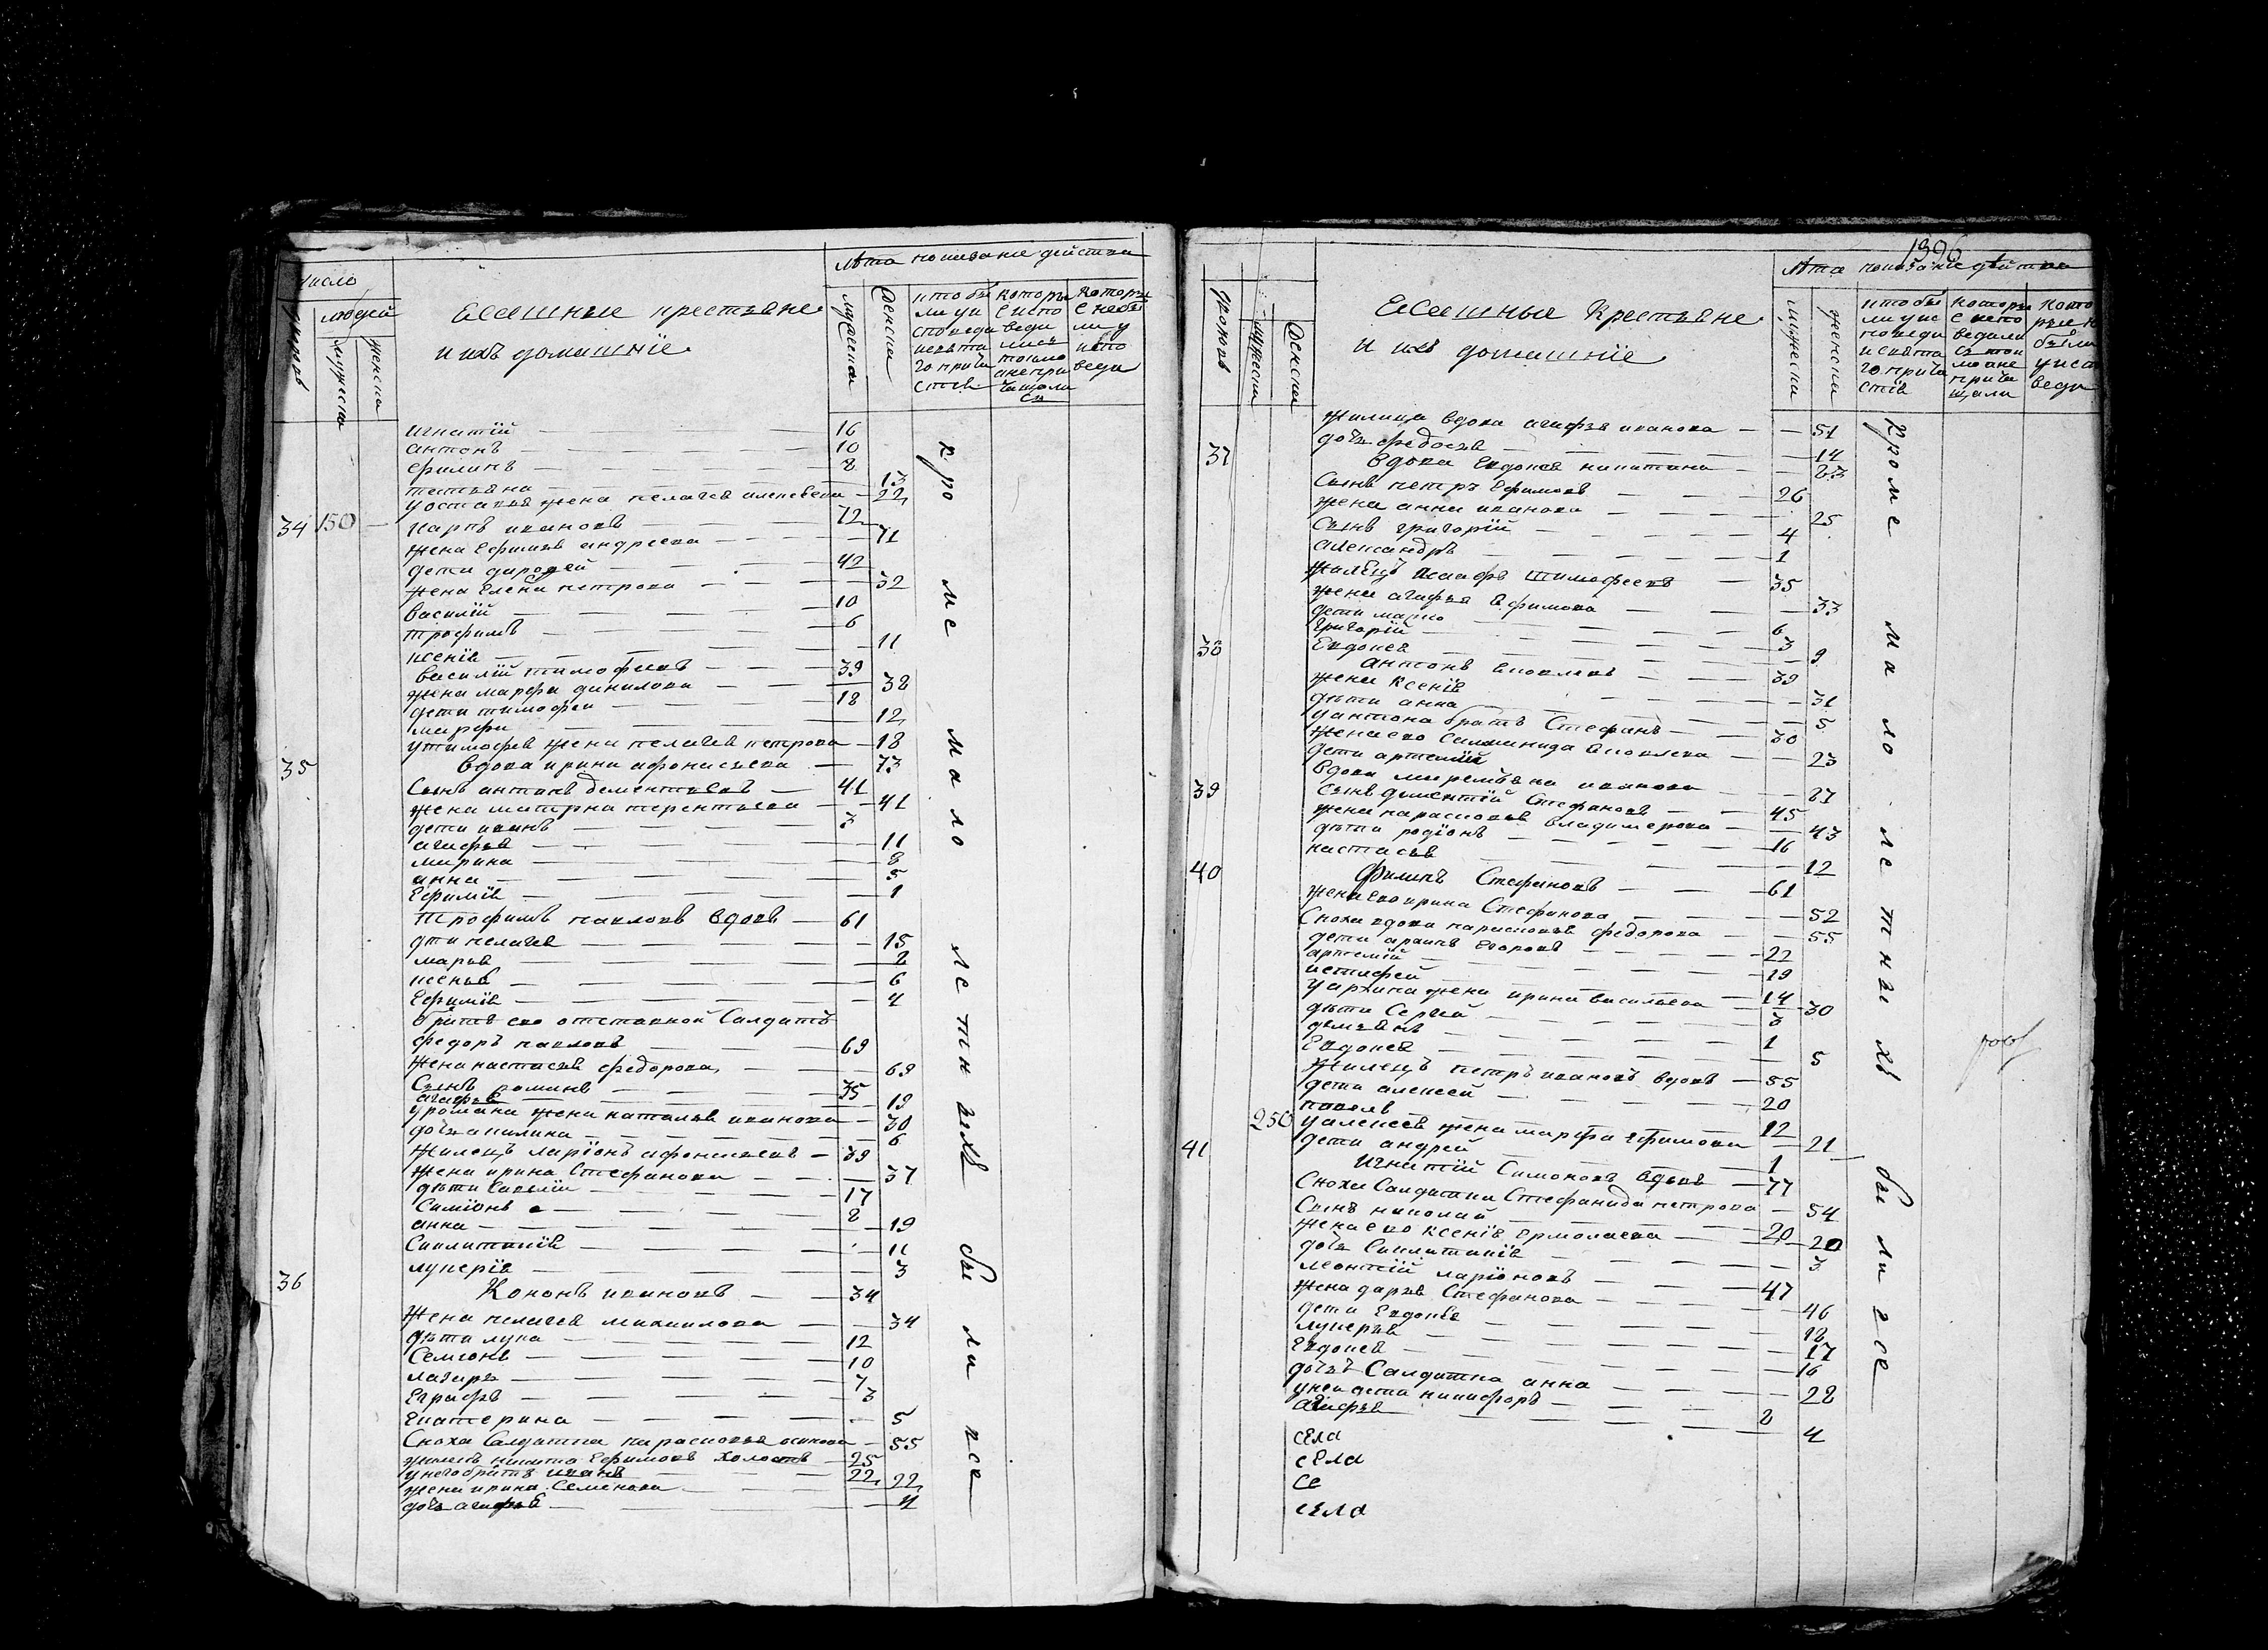 число
людей
дворовъ
мужеска
женска
Ясашные крестьяне
и ихъ домашнїе
лѣта показание действа
мужеска
женска
кто бы
ли у ис
споведи
и свята
го прича
стїя
которы
е испо
веди
лись
токмо
а не при
чащали
ся
которы
е небы
ли у
испо
веди
игнатїй 16
антонъ 10
филипъ 8
татьяна 13
у остапа жена пелагея алексеева 22
34 150 карпъ ивановъ 72
жена Ефимия андреева 71
дети дорофей 42
жена Елена петрова 32
василїй 10
трофимъ 6
ксенїя 11
василїй тимофеевъ 39
жена марфа данилова 38
дети тимофеи 18
марфа 12
у тимофея жена пелагея петрова 18
35 вдова ирина афонасьева 73
Сынъ антонъ дементьевъ 41
жена матрна терентьева 41
дети иванъ 3
агафья 11
марина 8
анна 5
Ефимїя 1
трофимъ павловъ вдовъ 61
дти пелагея 15
марья 8
ксенья 6
Ефимїя 4
братъ ево отставной Салдатъ
федоръ павловъ 69
жена настасья федорова 69
Сынъ романъ 35
агафья 19
у романа жена наталья иванова 30
дочь акилина 6
жилецъ ларїонъ афонасьевъ 39
жена ирина Стефанова 37
дѣти Савелїи 17
Симїонъ 8
анна 19
Сиклитикїя 11
лукерїя 3
36 Кононъ ивановъ 34
жена пелагея михаилова 34
дѣти лука 12
Семионъ 10
лазарь 7
Еграфъ 3
Екатерина 5
Сноха Салдатка парасковья осипова 55
жилецъ никита Ефимовъ холостъ 25
у него братъ иванъ 22
жена ирина Семенова 22
дочь агафья 4
кро ме ма ло ле тн ихъ бы ли все
1396
дворовъ
мужеска
женска
Ясашные крестьяне
и ихъ домашнїе
лѣта показание действа
мужеска
женска
кто бы
ли у ис
поведи
и свята
го прича
стїя
которы
е испо
ведали
сь ток
мо а не
прича
щали
кото
рые н
были
у исп
веди
жилица вдова агафья иванова 51
дочь федосья 14
37 вдова Евдокея никитина 83
Сынъ петръ Ефимовъ 26
жена анна иванова 25
Сынъ григорїй 4
александръ 1
жилецъ иосифъ тимофеевъ 35
жена агафья Ефимова 33
дети марко 6
григорїй 3
Евдокея 9
38 антонъ яковлевъ 39
жена ксенїя 31
дѣти анна 5
у антона братъ Стефанъ 30
жена ево Саламанида яковлева 23
дети артемїй
вдова маремьяна иванова 87
39 сынъ дементїй Стефановъ 45
жена парасковья владимерова 43
дѣти родїонъ 16
настасья 12
40 Филипъ Стефановъ 61
жена ево ирина Стефанова 52
Сноха вдова парасковья федорова 55
дети архипъ Егоровъ 22
артемїй 19
астафей 14
у архипа жена ирина васильева 30
дѣти Сергей 3
демьянъ 1
Евдокея 5
жилецъ петръ ивановъ вдовъ 55
дети алексей 20
павелъ 12
250 у алексея жена марфа Ефимова 21
дети андрей 1
41 Игнатїй Симоновъ вдовъ 77
Сноха Салдатка Стефанида петрова 54
Сынъ николай 20
жена ево ксенїя Ермолаева 20
дочь Сиклитикїя 3
леонтїй ларїоновъ 47
жена дарья Стефанова 46
дети Евдокея 18
лукерья 17
Евдокея 16
дочь Салдатка анна 28
у неи дети никифоръ 2
агафья 4
села
села
се
села
кроме ма ло ле тны хъ бы ли все